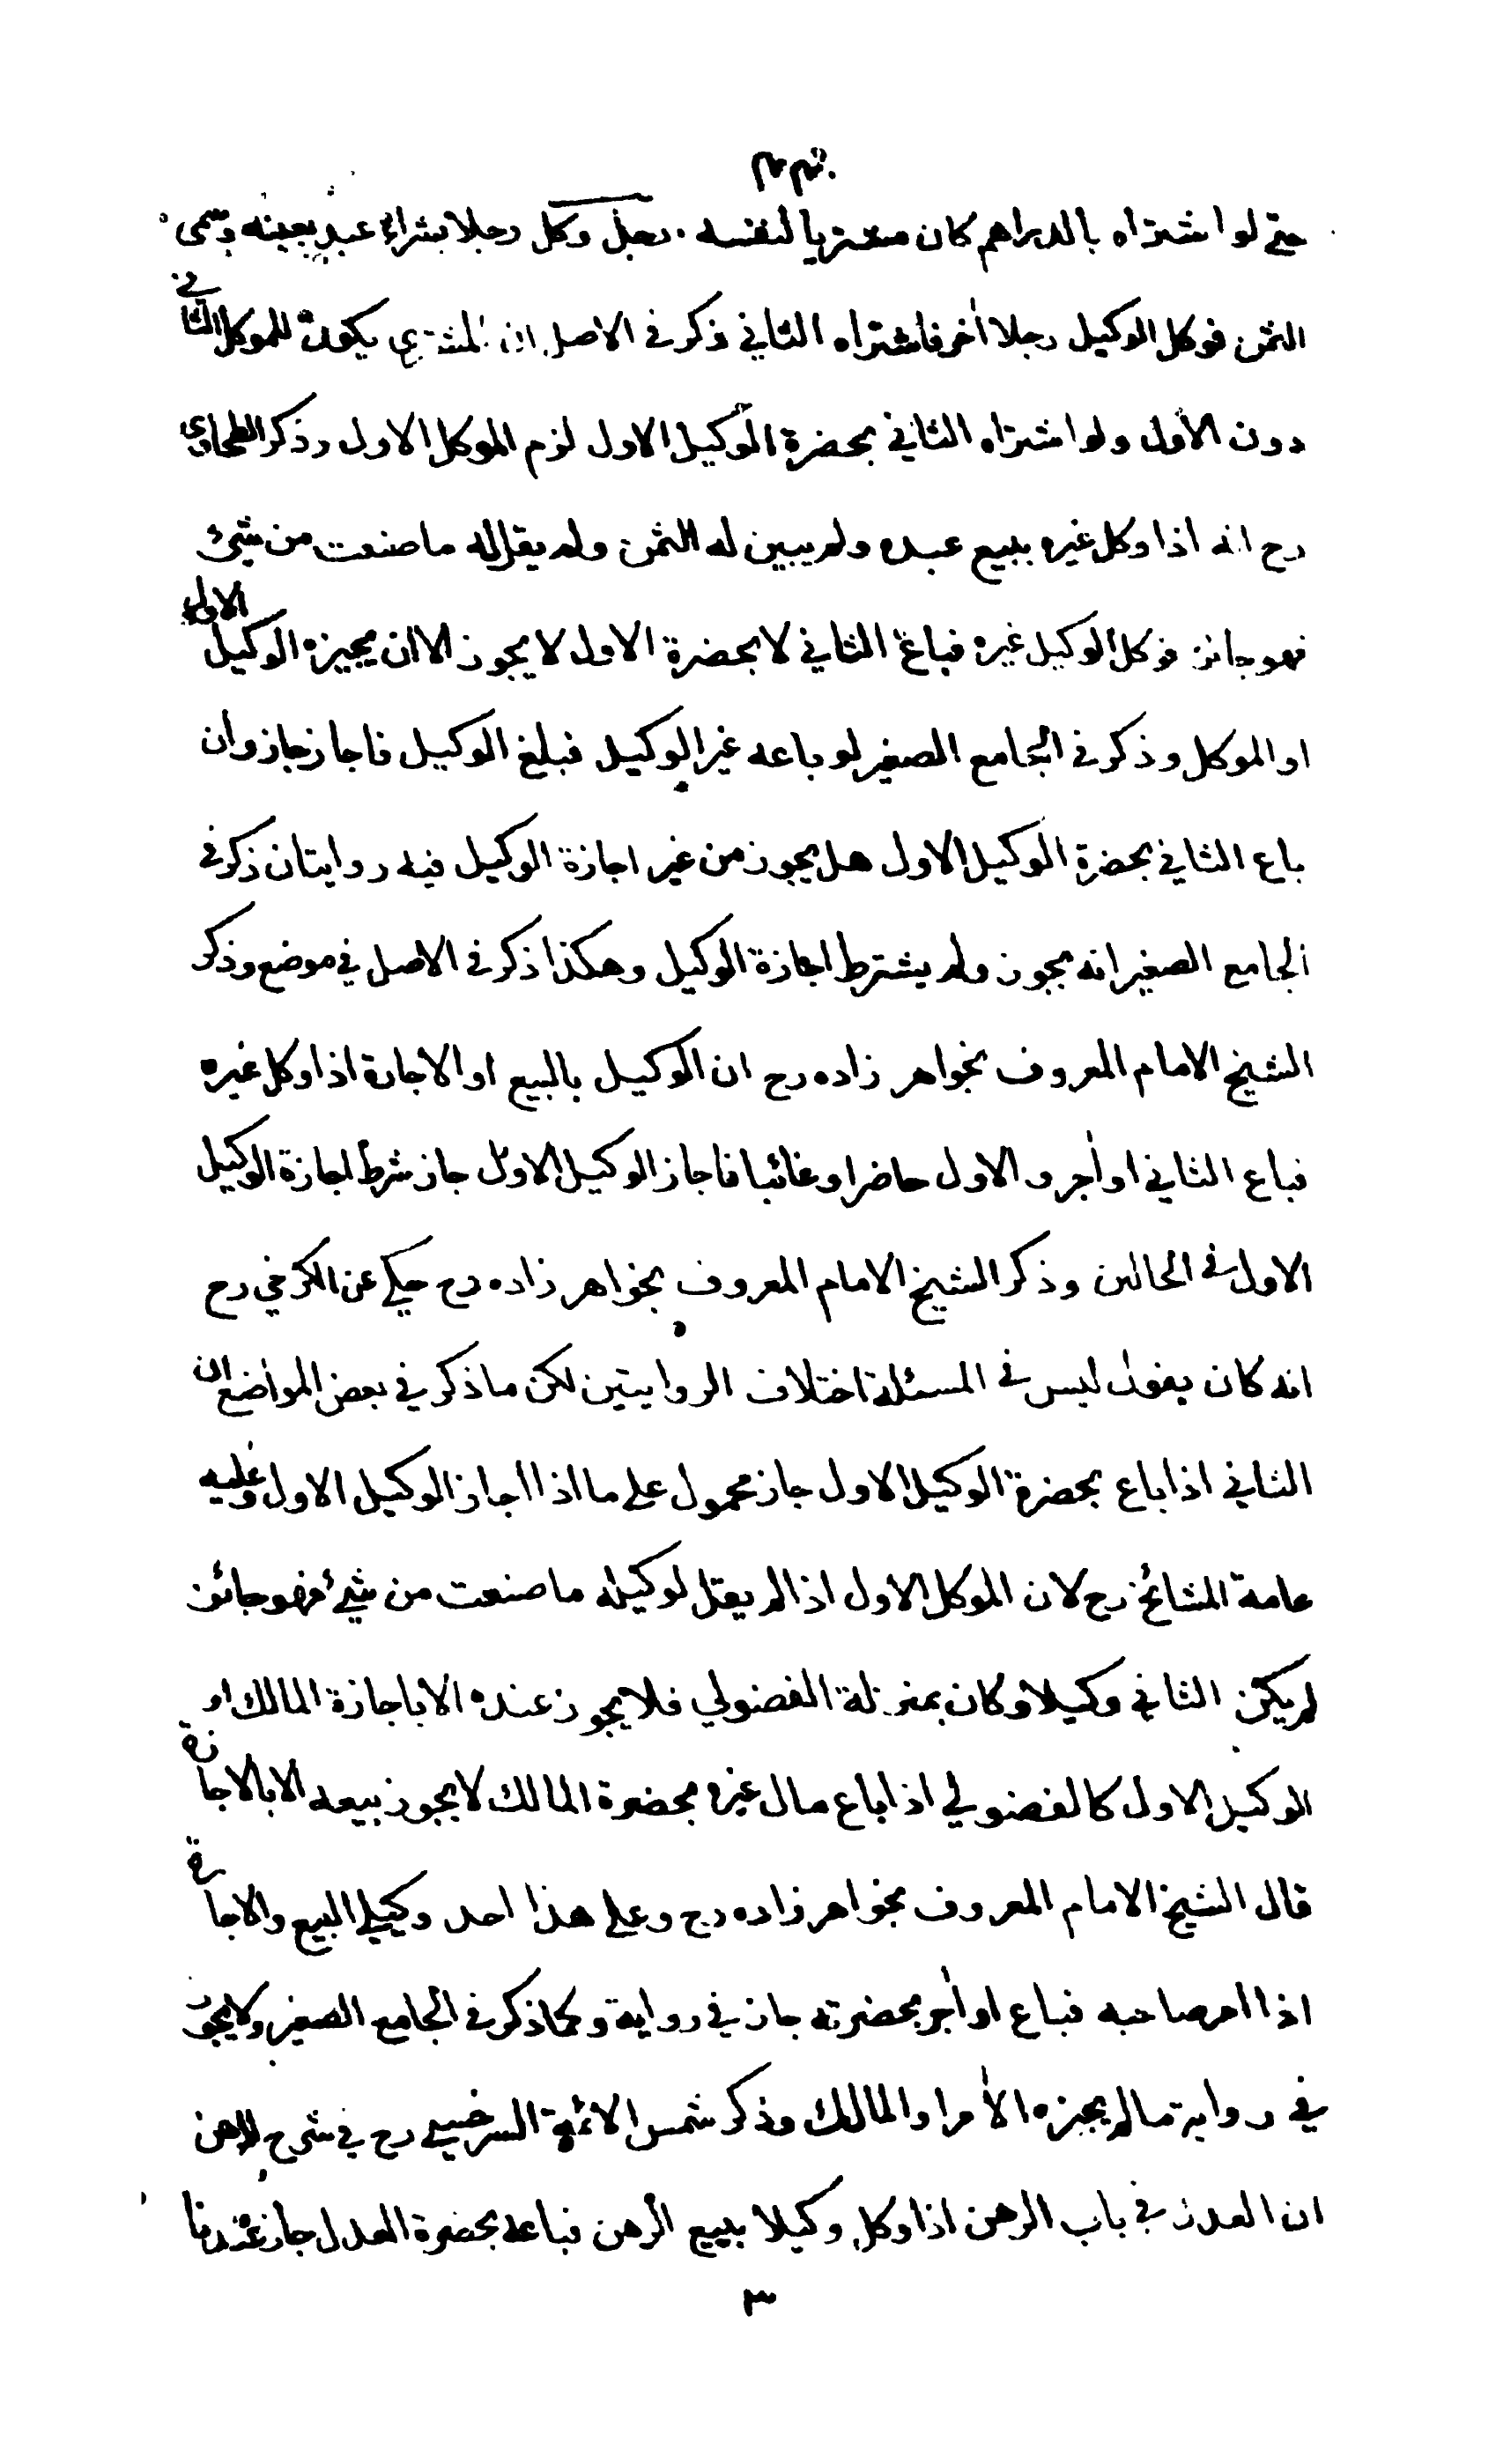 حتى لو اشتراه بالدراهم كان مشتريا لنفسه . رجل وكل رجلا بشراء عبد بعينه وسمى
الثمن فوكل الوكيل رجلا آخر فاشتراه الثاني ذكر في الاصل ان المشترى يكون للموكل الثاني
دون الأول ولو اشتراه الثاني بحضرة الوكيل الاول لزم الموكل الاول وذكر الطحاوي
رح انه اذا وكل غيره ببيع عبده ولم يبين له الثمن ولم يقل له ما صنعت من شيئ
فهو جائز فوكل الوكيل غيره فباع الثاني لا بحضرة الاول لا يجوز الا ان يجيزه الوكيل الاول
او الموكل وذكر في الجامع الصغير لو باعه غير الوكيل فبلغ الوكيل فاجاز جاز وان
باع الثاني بحضرة الوكيل الاول هل يجوز من غير اجازة الوكيل فيه روايتان ذكر في
الجامع الصغير انه يجوز ولم يشترط اجازة الوكيل وهكذا ذكر في الاصل في موضع وذكر
الشيخ الامام المعروف بخواهر زاده رح ان الوكيل بالبيع او الاجارة اذا وكل غيره
فباع الثاني او أجر و الاول حاضر او غائب فاجاز الوكيل الاول جاز شرط اجازة الوكيل
الاول في الحالين وذكر الشيخ الامام المعروف بخواهر زاده رح حكي عن الكرخي رح
انه كان يقول ليس في المسئلة اختلاف الروايتين لكن ما ذكر في بعض المواضع ان
الثاني اذا باع بحضرة الوكيل الاول جاز محمول على ما اذا اجاز الوكيل الاول وعليه
عامة المشائخ رح لان الموكل الاول اذا لم يقل لوكيله ما صنعت من شيئ فهو جائز
لم يكن الثاني وكيلا وكان بمنزلة الفضولي فلا يجوز عنده الا باجازة المالك او
الوكيل الاول كالفضولي اذا باع مال غيره بحضرة المالك لا يجوز بيعه الا بالاجازة
قال الشيخ الامام المعروف بخواهر زاده رح وعلى هذا احد وكيلي البيع والاجارة
اذا امر صاحبه فباع او أجر بحضرته جاز في رواية وكما ذكر في الجامع الصغير ولا يجوز
في رواية ما لم يجزه الآمر او المالك وذكر شمس الائمة السرخسي رح في شرح الرهن
ان العدل في باب الرهن اذا وكل وكيلا ببيع الرهن فباعه بحضرة العدل جاز عندنا
٣